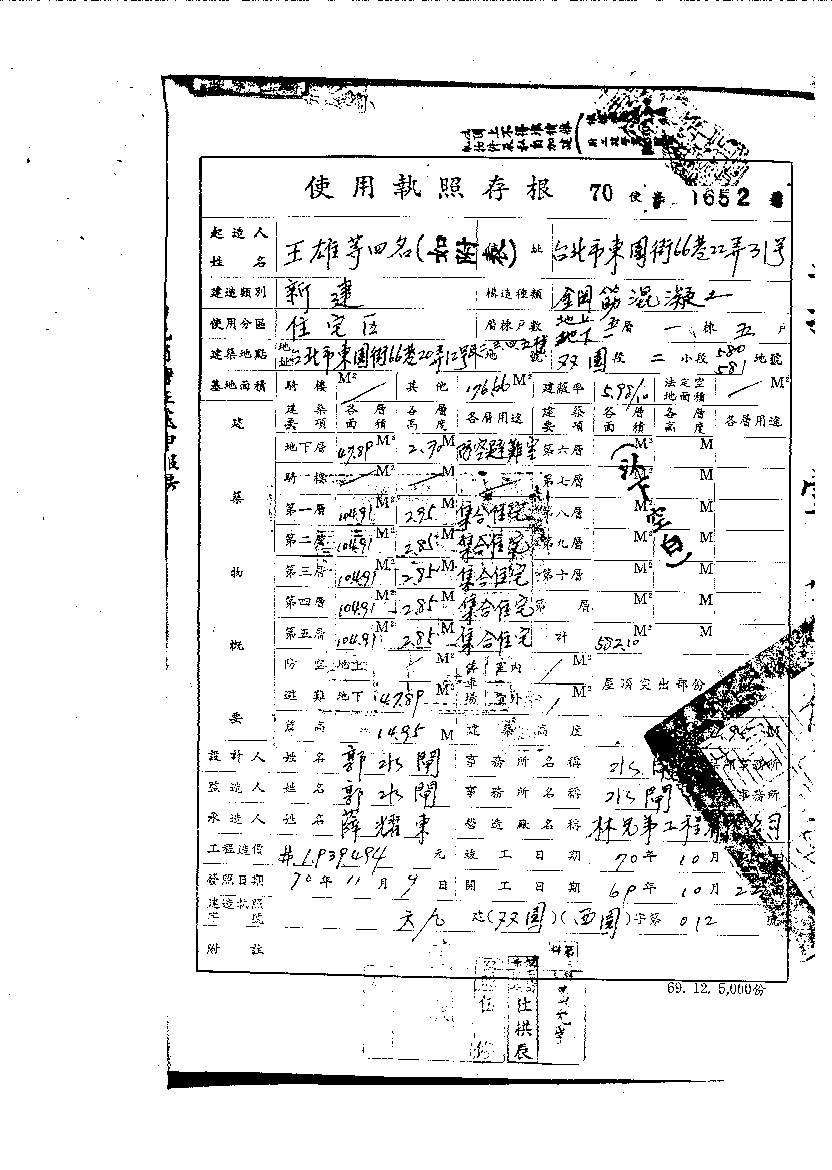 使用執照存根 70 使 1652 號
起造人姓名 王雄等四名(如附表) 址 台北市東園街66巷22弄31号
建造類別 新建 構造種類 鋼筋混凝土
使用分區 住宅區 層棟戶數 地上五層 地下一 一棟 五戶
建築地點 地址 台北市東園街66巷20弄12號 地號 双園段 二小段 580 581 地號
基地面積 騎樓 M² 其他 176.66 M² 建蔽率 5.98/10 法定空地面積 M²
建築要項 各層面積 各層高度 各層用途 建築要項 各層面積 各層高度 各層用途
地下層 47.89 M² 2.70 M 防空避難室 第六層 M² M
騎樓 M² M 第七層 M² M
第一層 104.91 M² 2.95 M 集合住宅 第八層 M² M
第二層 104.91 M² 2.85 M 集合住宅 第九層 M² M
第三層 104.91 M² 2.85 M 集合住宅 第十層 M² M
第四層 104.91 M² 2.85 M 集合住宅 第 層 M² M
第五層 104.91 M² 2.85 M 集合住宅 計 582.10 M² M
(以下空白)
建築物概要
防空 地上 M² 停車場 室內 M² 屋頂突出部份
避難 地下 47.89 M² 室外 M²
簷高 14.95 M 建築高度 M
設計人 姓名 郭水閘 事務所名稱 水閘 事務所
監造人 姓名 郭水閘 事務所名稱 水閘 事務所
承造人 姓名 薛耀東 營造廠名稱 林兄弟工程有限公司
工程造價 #1,939,494 元 竣工日期 70年10月
發照日期 70年11月9日 開工日期 69年10月22
建造執照字號 六九 建(双園)(西園)字第 012 號
附註
69. 12. 5,000份